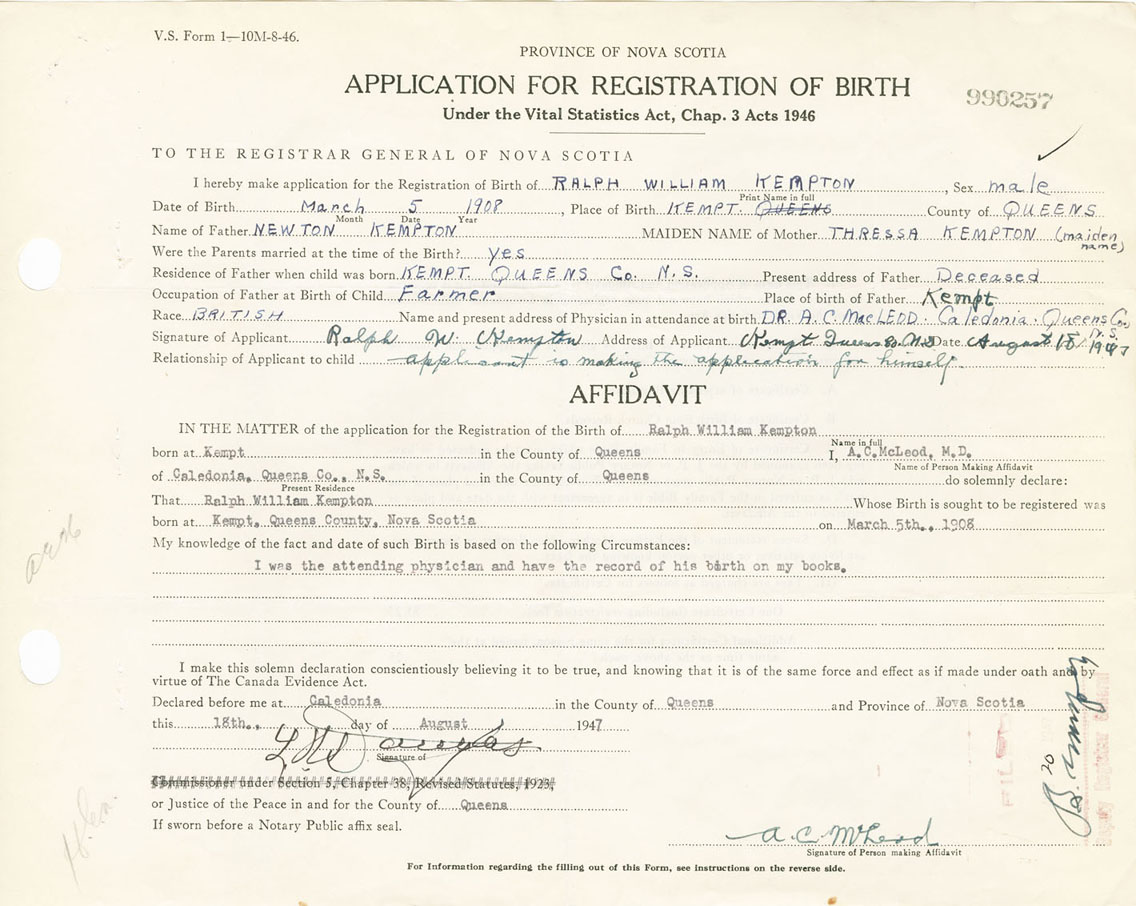 V.S. Form 1—10M-8-46.
PROVINCE OF NOVA SCOTIA
APPLICATION FOR REGISTRATION OF BIRTH
990257
Under the Vital Statistics Act, Chap. 3 Acts 1946
TO THE REGISTRAR GENERAL OF NOVA SCOTIA
I hereby make application for the Registration of Birth of RALPH WILLIAM KEMPTON, Sex male
Print Name in full
Date of Birth March 5 1908, Place of Birth KEMPT. QUEENS County of QUEENS
Month Date Year
Name of Father NEWTON KEMPTON MAIDEN NAME of Mother THRESSA KEMPTON (maiden name)
Were the Parents married at the time of the Birth? yes
Residence of Father when child was born KEMPT. QUEENS Co. N.S. Present address of Father Deceased
Occupation of Father at Birth of Child Farmer Place of birth of Father Kempt
Race BRITISH Name and present address of Physician in attendance at birth DR. A.C. MacLEOD. Caledonia. Queens Co. N.S.
Signature of Applicant Ralph W. Kempton Address of Applicant Kempt Queens Co. N.S Date August 18/1947
Relationship of Applicant to child applicant is making the application for himself.
AFFIDAVIT
IN THE MATTER of the application for the Registration of the Birth of Ralph William Kempton
Name in full
born at Kempt in the County of Queens I, A.C.McLeod, M.D.
Name of Person Making Affidavit
of Caledonia, Queens Co., N.S. in the County of Queens do solemnly declare:
Present Residence
That Ralph William Kempton Whose Birth is sought to be registered was
born at Kempt, Queens County, Nova Scotia on March 5th., 1908
My knowledge of the fact and date of such Birth is based on the following Circumstances:
I was the attending physician and have the record of his birth on my books.
I make this solemn declaration conscientiously believing it to be true, and knowing that it is of the same force and effect as if made under oath and by
virtue of The Canada Evidence Act.
Declared before me at Caledonia in the County of Queens and Province of Nova Scotia
this 18th., day of August 1947
Douglas
Signature of
Commissioner under Section 5, Chapter 38, Revised Statutes, 1923,
or Justice of the Peace in and for the County of Queens
If sworn before a Notary Public affix seal.
A.C. McLeod
Signature of Person making Affidavit
For Information regarding the filling out of this Form, see instructions on the reverse side.
Deputy Registrar General